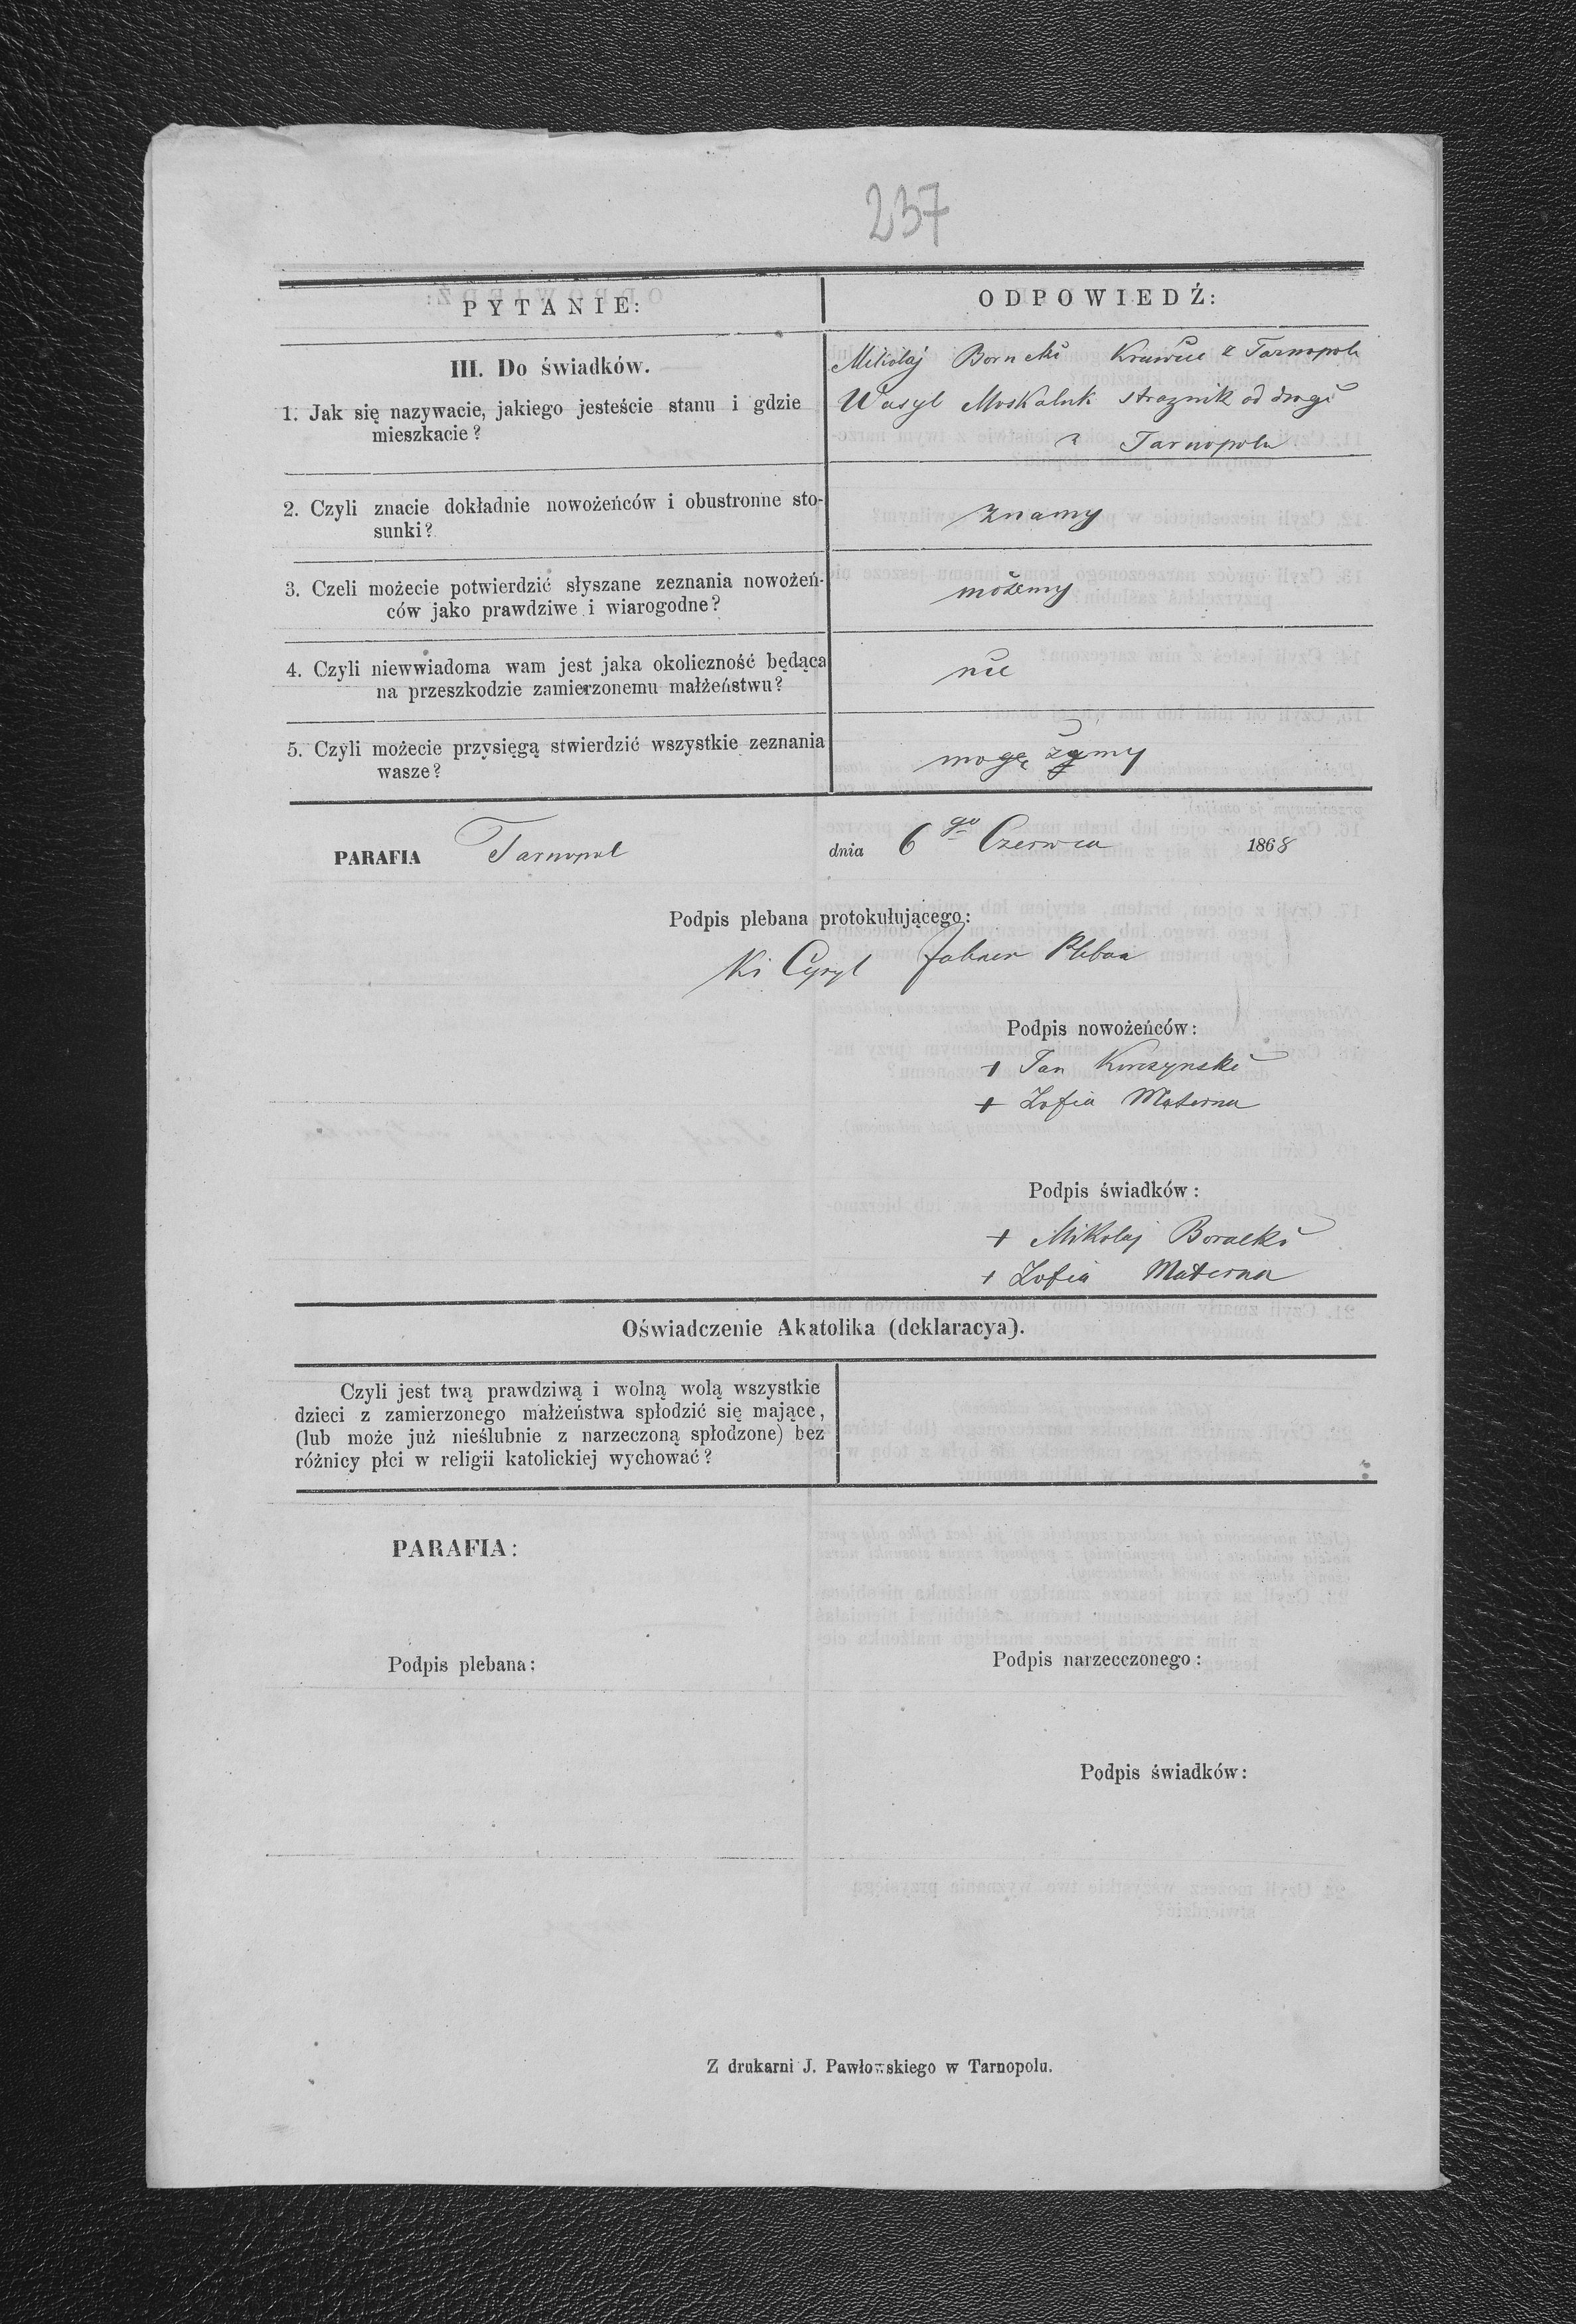 237
PYTANIE:
ODPOWIEDŹ:
III. Do świadków.
1. Jak się nazywacie, jakiego jesteście stanu i gdzie
mieszkacie?
Mikolaj Krawiec z Tarnopola
Wasyl Moskaluk straznik od drogi
z Tarnopola
2. Czyli znacie dokładnie nowożeńców i obustronne sto-
sunki?
znamy
3. Czeli możecie potwierdzić słyszane zeznania nowożeń-
ców jako prawdziwe i wiarogodne?
możemy
4. Czyli niewwiadoma wam jest jaka okoliczność będąca
na przeszkodzie zamierzonemu małżeństwu?
nie
5. Czyli możecie przysięgą stwierdzić wszystkie zeznania
wasze?
PARAFIA Tarnopol dnia 6 go Czerwca 1868
Podpis plebana protokułującego:
Cyryl Pleban
Podpis nowożeńców:
+ Jan
+ Zofia Materna
Podpis świadków:
+ Mikolaj
+ Zofia Materna
Oświadczenie Akatolika (deklaracya).
Czyli jest twą prawdziwą i wolną wolą wszystkie
dzieci z zamierzonego małżeństwa spłodzić się mające,
(lub może już nieślubnie z narzeczoną spłodzone) bez
różnicy płci w religii katolickiej wychować?
PARAFIA:
Podpis plebana:
Podpis narzecczonego:
Podpis świadków:
Z drukarni J. Pawłowskiego w Tarnopolu.